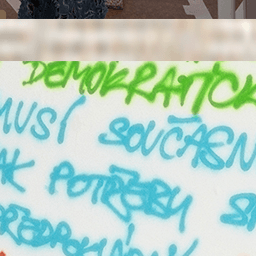 DEMOKRATICK
MUSÍ SOUČASN
AK POTŘEBY S
PŘEDPOKLÁDAJ